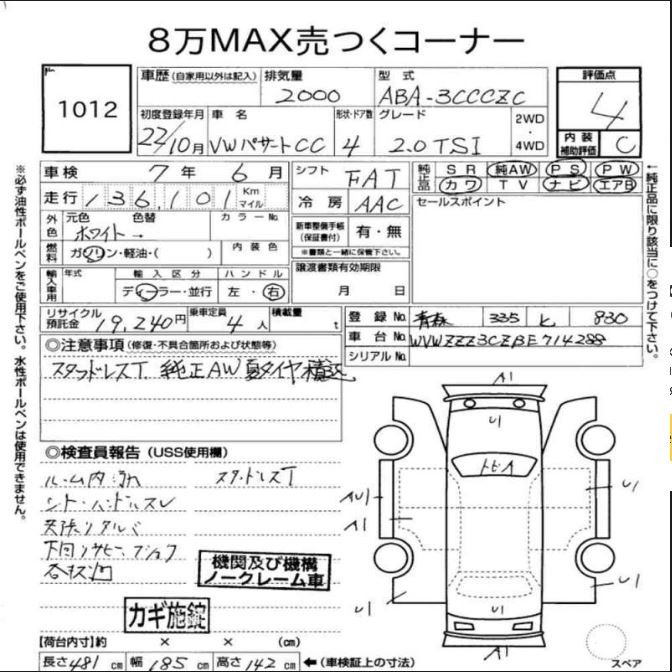 8万MAX売つくコーナー
1012
車歴(自家用以外は記入)
排気量
2000
型式
ABA-3CCCZC
評価点
4
内装補助評価 C
初度登録年月
22/10月
車名
VWパサートCC
形状・ドア数
4
グレード
2.0TSI
2WD・4WD
車検 7年 6月
走行 136,101 Km マイル
シフト FAT
冷房 AAC
純正品 SR 純AW PS PW
カワ TV ナビ エアB
セールスポイント
外色 元色 色替 カラーNo.
ホワイト→
内装色
燃料 ガソリン・軽油・( )
新車整備手帳(保証書付) 有・無
※書類と一緒に保管下さい。
譲渡書類有効期限
月 日
輸入車用 年式 輸入区分 ハンドル
ディーラー・並行 左・右
リサイクル預託金 19,240円
乗車定員 4人
積載量 t
登録No. 青森 335 830
車台No. WVWZZZ3CZBE714288
シリアルNo.
◎注意事項(修復・不具合箇所および状態等)
スタッドレスT 純正AW夏タイヤ積込
◎検査員報告(USS使用欄)
ルーム内汚れ スタッドレスT
シート・ハンドルスレ
下回りサビ
機関及び機構
ノークレーム車
カギ施錠
【荷台内寸】約 × × (cm)
長さ481cm 幅185cm 高さ142cm ←(車検証上の寸法)
A1
U1
A1
U1
U1
U1
U1
A1
スペア
※必ず油性ボールペンをご使用下さい。水性ボールペンは使用できません。
↑純正品に限り該当に○をつけて下さい。